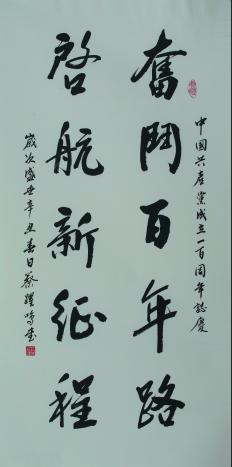 中國共產黨成立一百周年誌慶
奮鬥百年路
啓航新征程
歲次盛世辛丑春日蔡躍鳴書